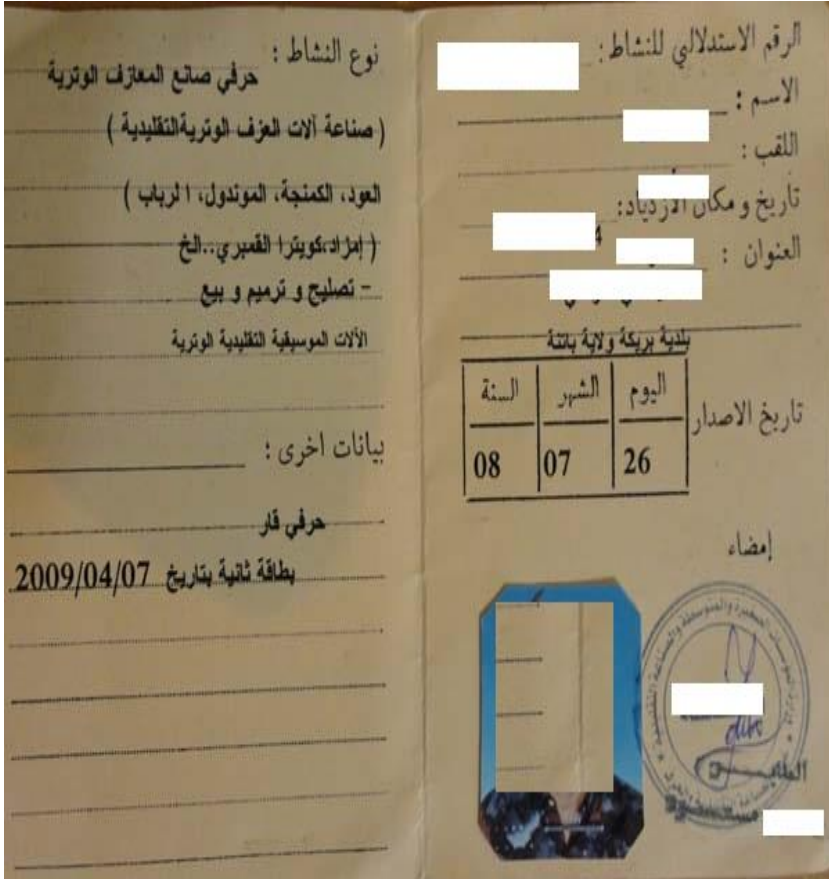 الرقم الاستدلالي للنشاط :
الاسم :
اللقب :
تاريخ و مكان الازدياد:
العنوان :
بلدية بريكة ولاية باتنة
تاريخ الاصدار
اليوم الشهر السنة
26 07 08
إمضاء
نوع النشاط :
حرفي صانع المعازف الوترية
( صناعة آلات العزف الوتريةالتقليدية )
العود، الكمنجة، الموندول، الرباب )
( إمزاد،كويترا القمبري..الخ
- تصليح و ترميم و بيع
الآلات الموسيقية التقليدية الوترية
بيانات اخرى :
حرفي قار
بطاقة ثانية بتاريخ 2009/04/07